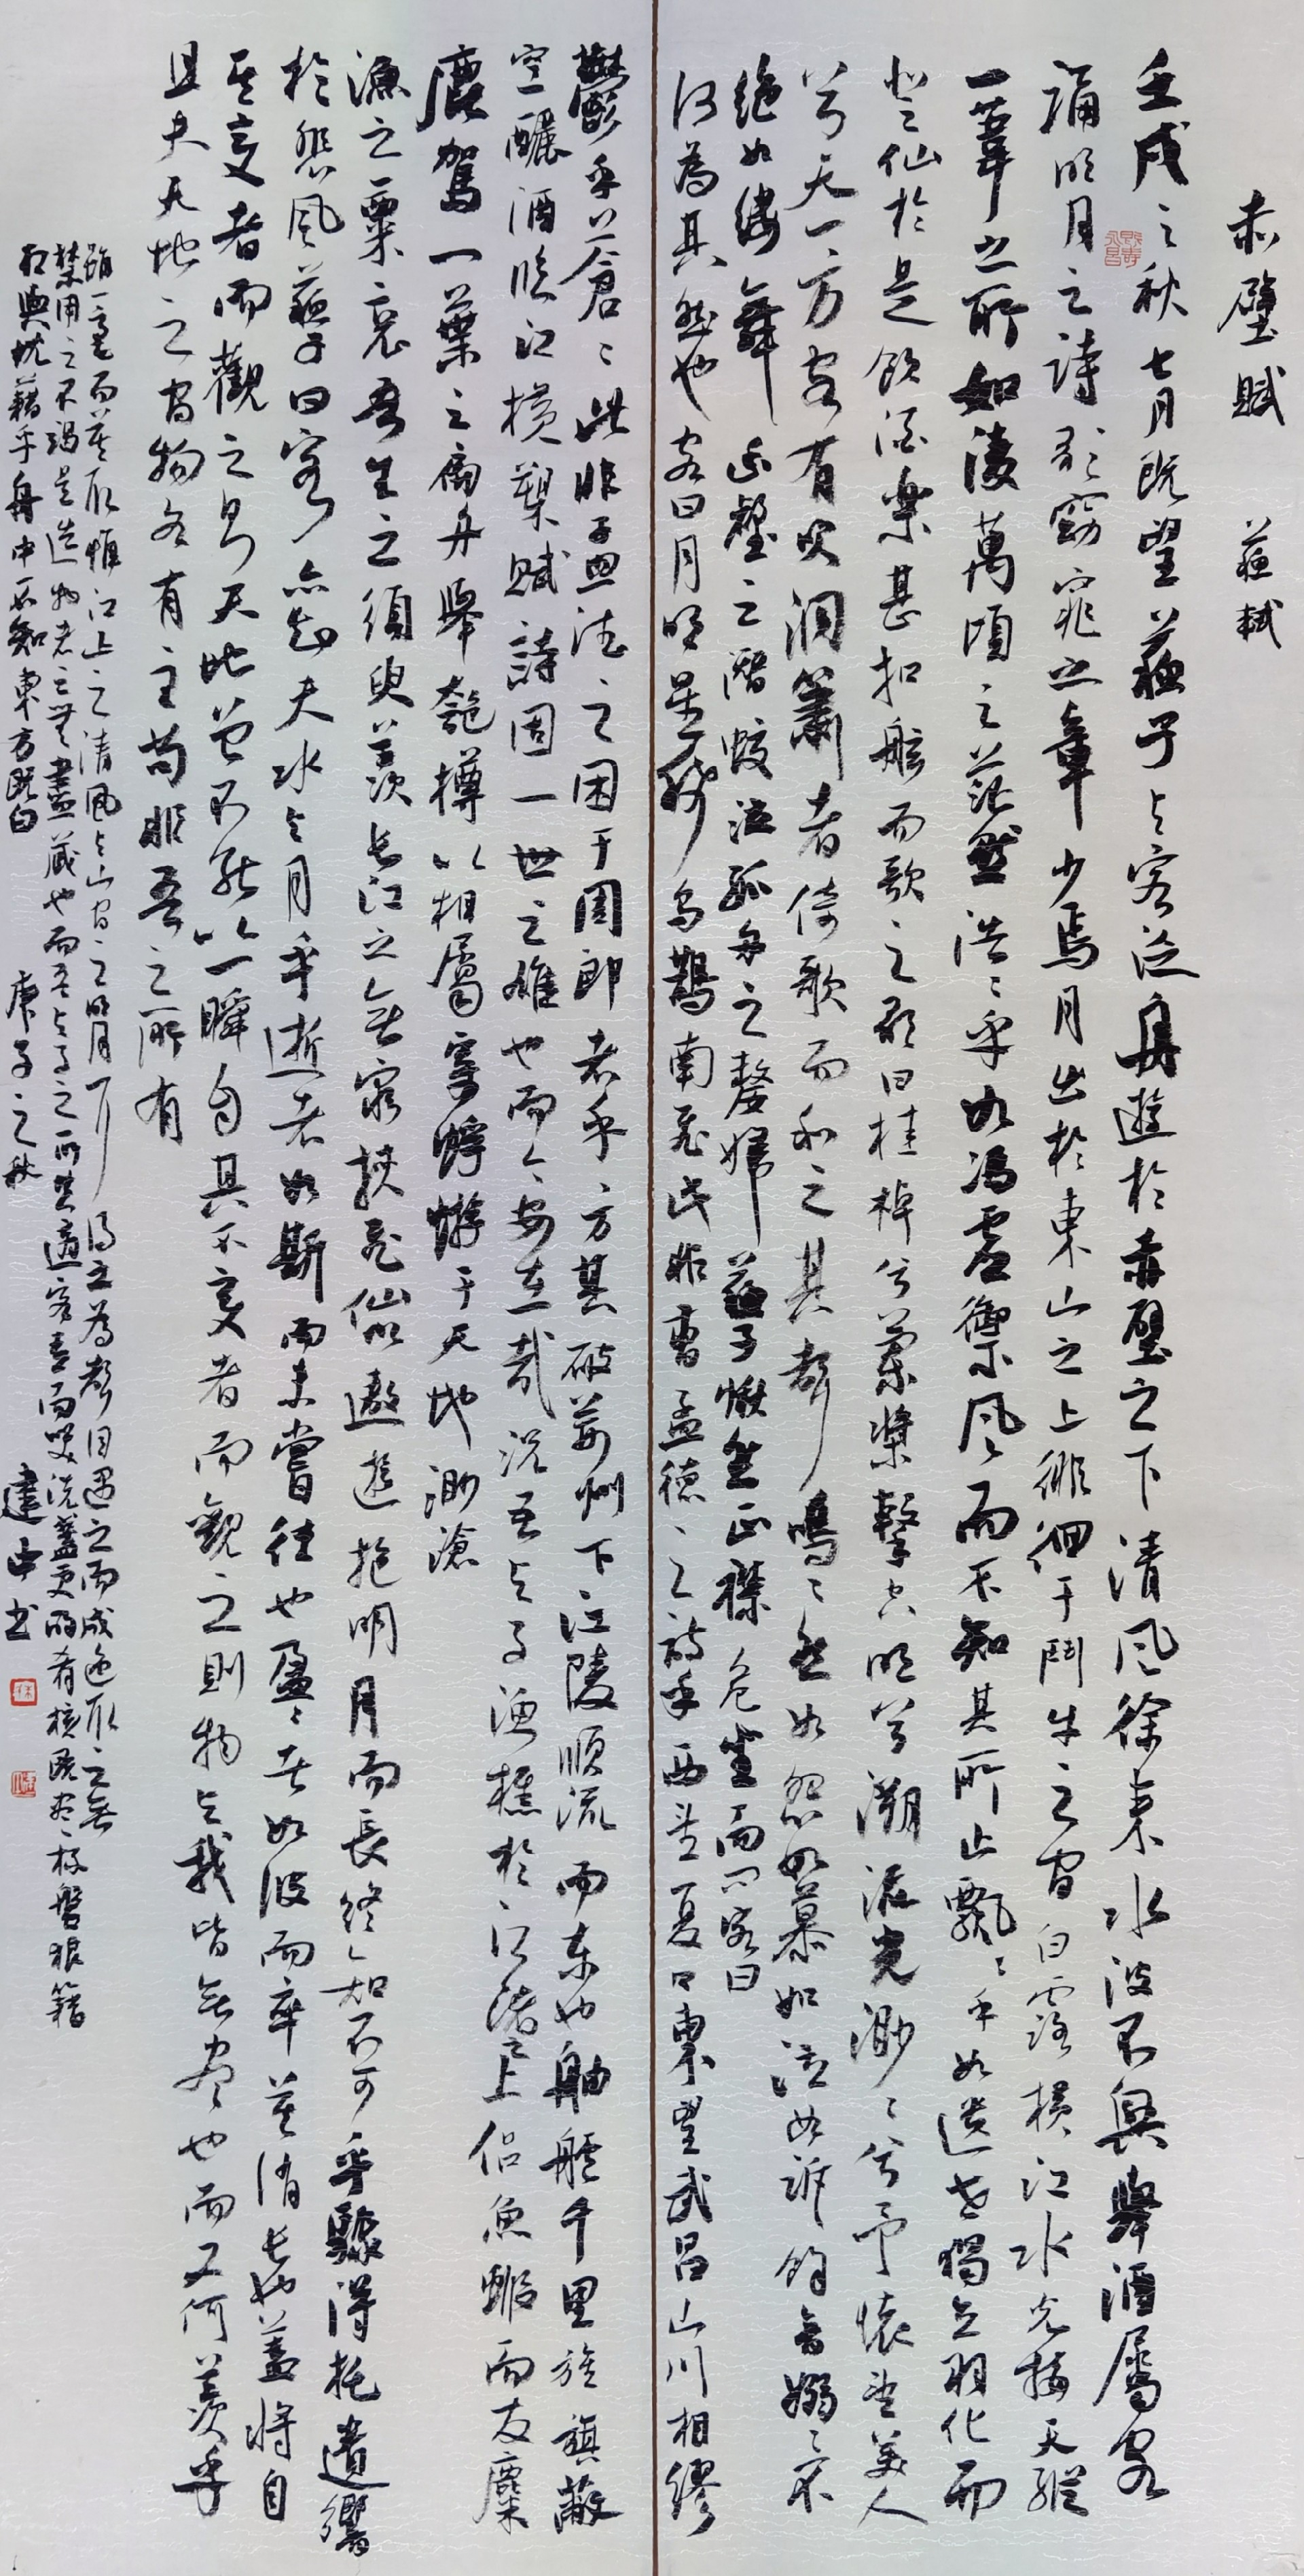 赤壁賦 蘇軾
壬戌之秋七月既望蘇子与客泛舟遊於赤壁之下清風徐来水波不興舉酒屬客
誦明月之詩歌窈窕之章少焉月出於東山之上徘徊于鬥牛之間白露橫江水光接天縱
一葦之所如淩萬頃之茫然浩々乎如馮虛禦風而不知其所止飄々乎如遺世獨立羽化而
登仙於是飲酒樂甚扣舷而歌之歌曰桂棹兮蘭槳擊空明兮溯流光渺々兮予懷望美人
兮天一方客有吹洞簫者倚歌而和之其聲嗚々然如怨如慕如泣如訴餘音嫋々不
絕如縷舞幽壑之潛蛟泣孤舟之嫠婦蘇子愀然正襟危坐而问客曰
何為其然也客曰月明星稀烏鵲南飛此非曹孟德々之詩乎西望夏口東望武昌山川相繆
鬱乎蒼々此非孟德之困于周郎者乎方其破荊州下江陵順流而東也舳艫千里旌旗蔽
空釃酒臨江橫槊賦詩固一世之雄也而今安在哉況吾与子漁樵於江渚之上侶魚蝦而友麋
鹿駕一葉之扁舟舉匏樽以相屬寄蜉蝣于天地渺滄
漁之粟哀吾生之須臾羨長江之無窮挾飛仙以遨遊抱明月而長終知不可乎驟得托遺響
於悲風蘇子曰客亦知夫水与月乎逝者如斯而未嘗往也盈々者如彼而卒莫消長也蓋將自
其變者而觀之則天地曾不能以一瞬自其不變者而觀之則物与我皆無盡也而又何羨乎
且夫天地之間物各有主苟非吾之所有
雖一毫而莫取惟江上之清風与山間之明月耳得之為聲目遇之而成色取之無
禁用之不竭是造物者之無盡藏也而吾与子之所共適客喜而笑洗盞更酌肴核既盡杯盤狼籍
相與枕藉乎舟中不知東方既白 庚子之秋 建中书